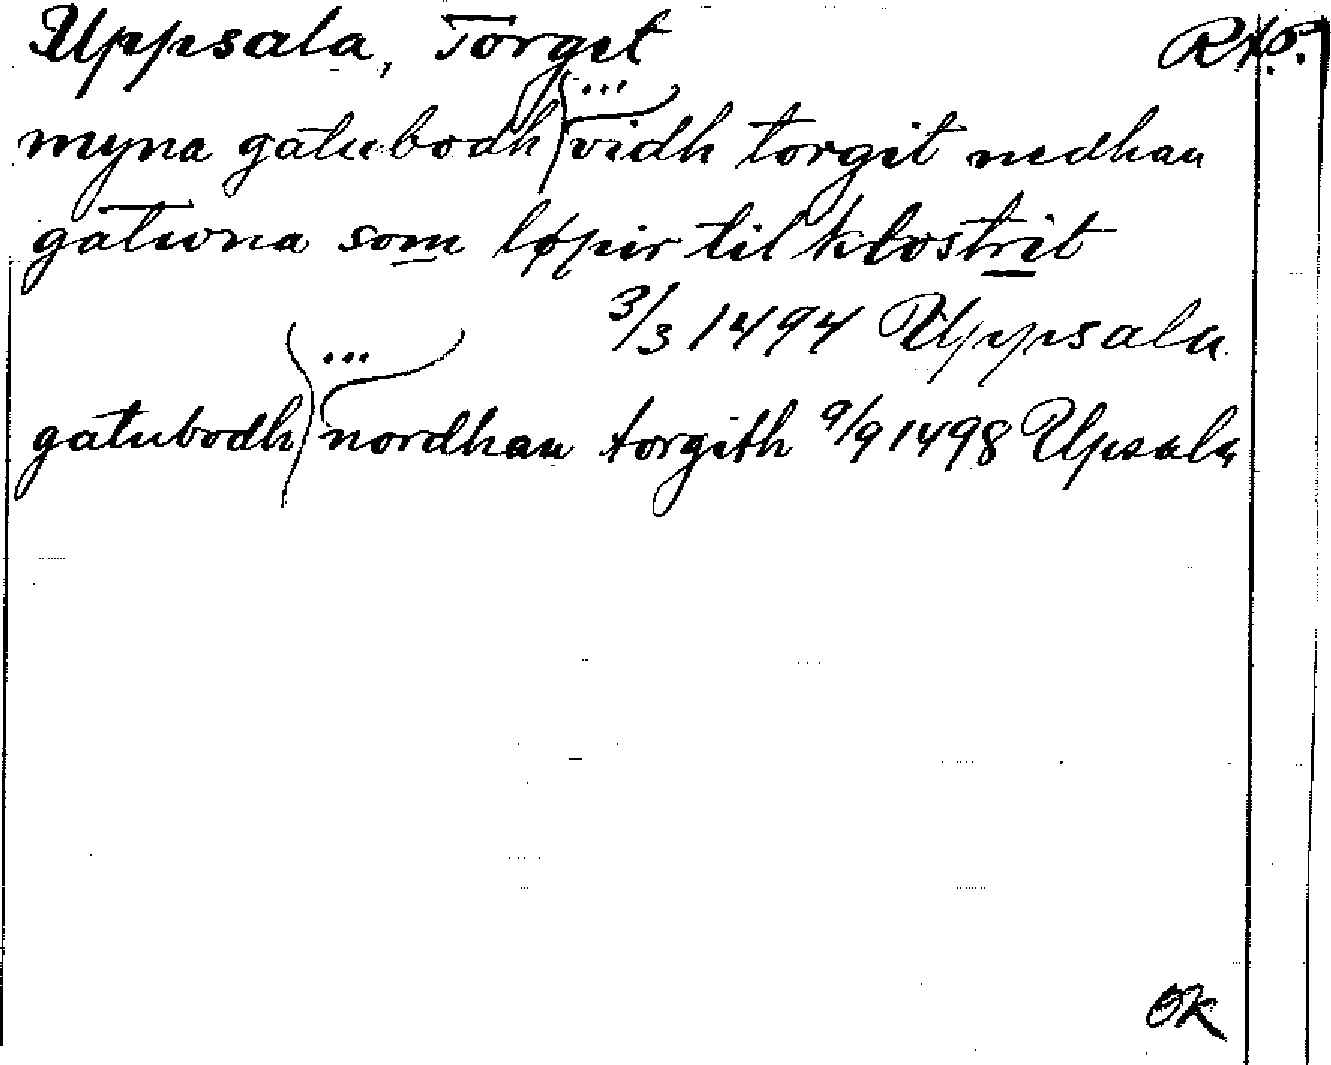 Uppsala, Torgit
RAp.
myna gatubodh ... vidh torgit nedhan
gatuna som løpir til klostrit
3/3 1494 Uppsala
gatubodh ... nordhan torgith 9/9 1498 Upsala
OK